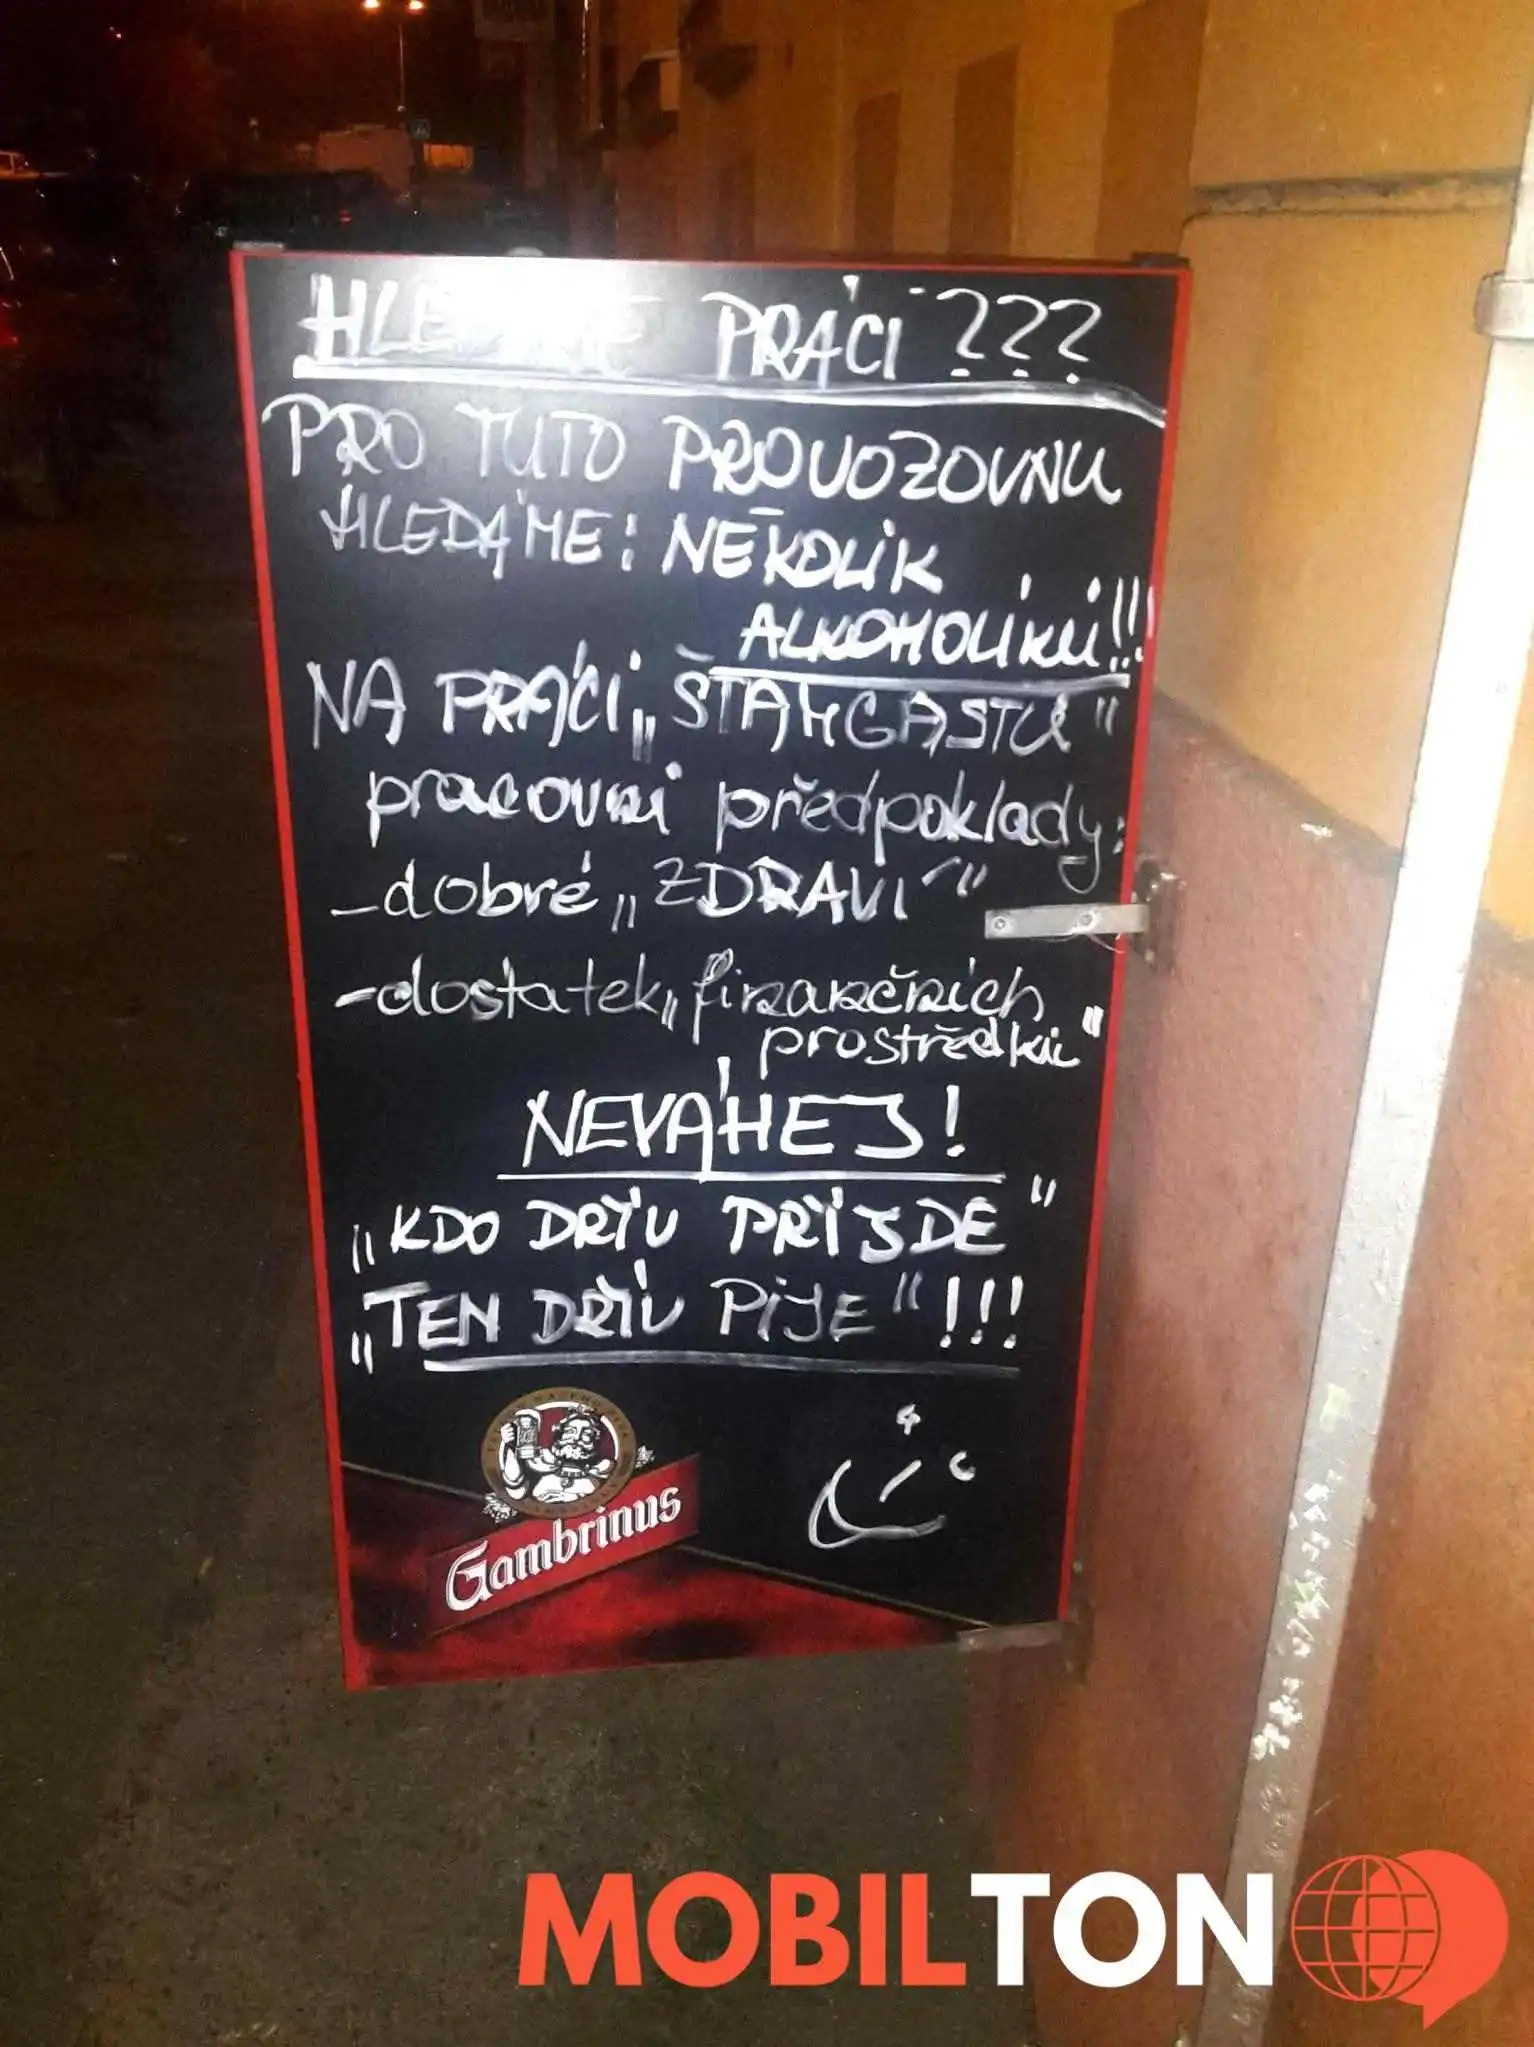 PRÁCI ???
PRO TUTO PROVOZOVNU
HLEDÁME: NĚKOLIK
ALKOHOLIKŮ!!!
NA PRÁCI „ŠTAMGASTŮ"
pracovní předpoklady:
-dobré „ZDRAVÍ"
-dostatek „finančních
prostředků"
NEVÁHEJ!
„KDO DŘÍV PŘIJDE"
„TEN DŘÍV PIJE"!!!
Gambrinus
MOBILTON